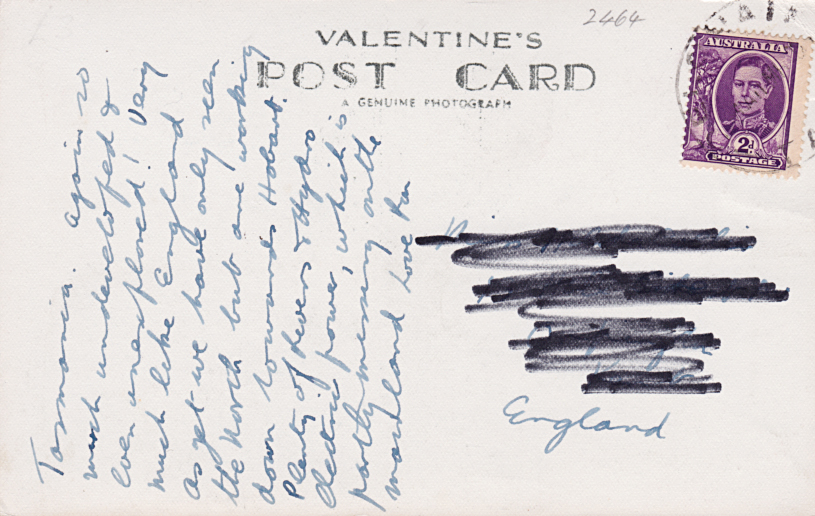 2464
VALENTINE'S
POST CARD
A GENUINE PHOTOGRAPH
AUSTRALIA
2D
POSTAGE
Tasmania. Again so
much undeveloped &
even unexplored! Very
much like England
as yet we have only seen
the North but are working
down towards Hobart.
Plenty of rivers & Hydro
electric power, which is
partly missing on the
mainland love
England